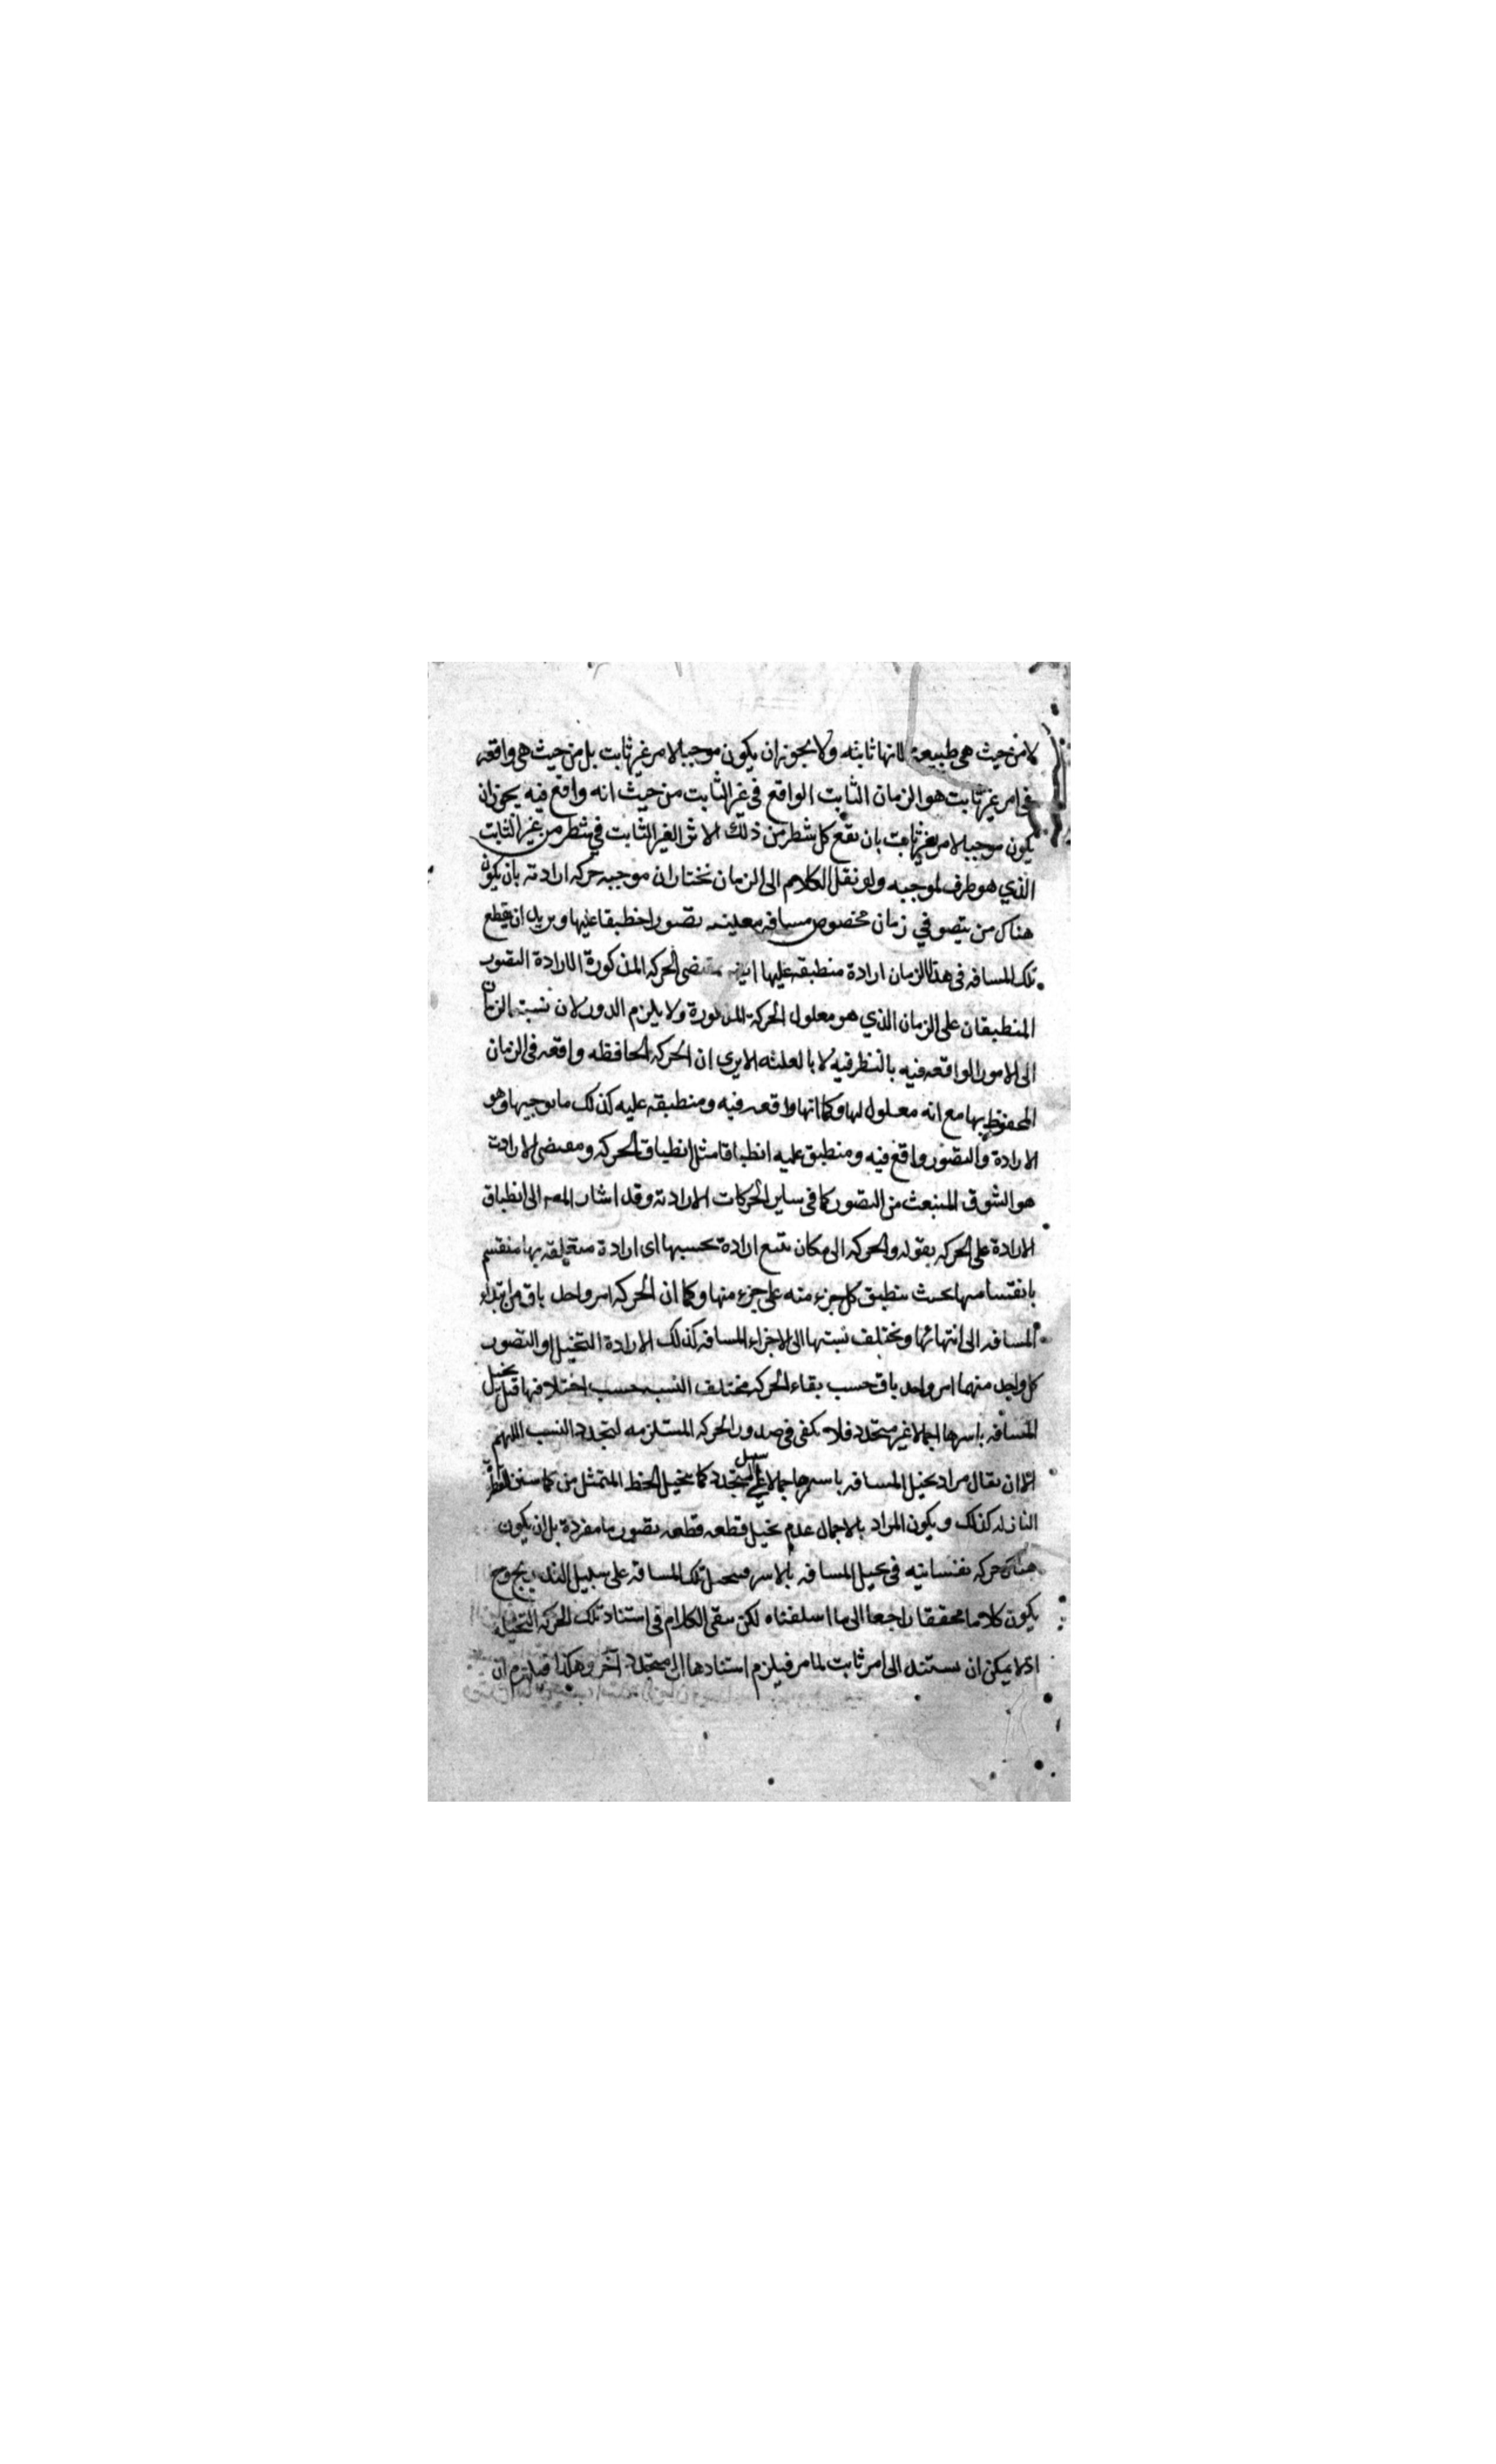 لا من حيث هي طبيعة لانها ثابته ولا يجوز ان يكون موجبا لامر غير ثابت بل من حيث هي واقعه
في امر غير ثابت هو الزمان الثابت الواقع في غير الثابت من حيث انه واقع فيه يجوز ان
يكون موجبا لامر غير ثابت بان يقع كل شطر من ذلك الاثر الغير الثابت في شطر من غير الثابت
الذي هو ظرف لموجبه ولو نقل الكلام الى الزمان نختار ان موجبه حركه ارادته بان يكون
هناك من يتصو في زمان مخصوص مسافه معينه تصورا منطبقا عليها ويريد ان يقطع
تلك المسافه في هذا الزمان ارادة منطبقه عليها الحركه المذكورة الارادة التصور
المنطبقان على الزمان الذي هو معلول الحركة المذكورة ولا يلزم الدور لان نسبته الزمان
الى الامور الواقعه فيه بالنظر فيه لا بالعلته الا يرى ان الحركه الحافظه واقعه في الزمان
المحفوظ بها مع انه معلول لها وكما انها واقعه فيه ومنطبقه عليه كذلك ما يوجبها وهو
الارادة والتصور واقع فيه ومنطبق عليه انطباقا مثل انطباق الحركه ومقتضى الارادت
هو الشوق المنبعث من التصور كما في ساير الحركات الارادته وقد اشار المصـ الى انطباق
الارادة على الحركه بقوله والحركه الى مكان تتبع ارادة بحسبها اى ارادة متعلقه بها منقسم
بانقسامها بحيث ينطبق كل جزء منه على جزء منها وكما ان الحركه امر واحد باق من ابتداء
المسافه الى انتهائها ويختلف نسبتها الى الاجزاء المسافه كذلك الارادة التخيل او التصور
كل واحد منهما امر واحد باق حسب بقاء الحركه مختلف النسب حسب اختلافها قيل تخيل
المسافه باسرها اجمالا غير متجدد فلا يكفى في صدور الحركه المستلزمه لتجدد النسب اللهم
الا ان يقال مراد بتخيل المسافه باسرها اجمالا على سبيل التجدد كما يتخيل الخط المتمثل من القطر
النازله كذلك ويكون المراد بالاجمال عدم تخيل قطعه قطعه تصور ما مفردة بل ان يكون
هناك حركه نفسانيه في تخيل المسافه بالاسر فيتخيل تلك المسافه على سبيل التدريج وح
يكون كلاما محققا راجعا الى ما اسلفناه لكن بقى الكلام في استناد تلك الحركه التخيليه
اذ لا يمكن ان يستند الى امر ثابت لما مر فيلزم استنادها الى متجدد آخر وهكذا فيلزم ان